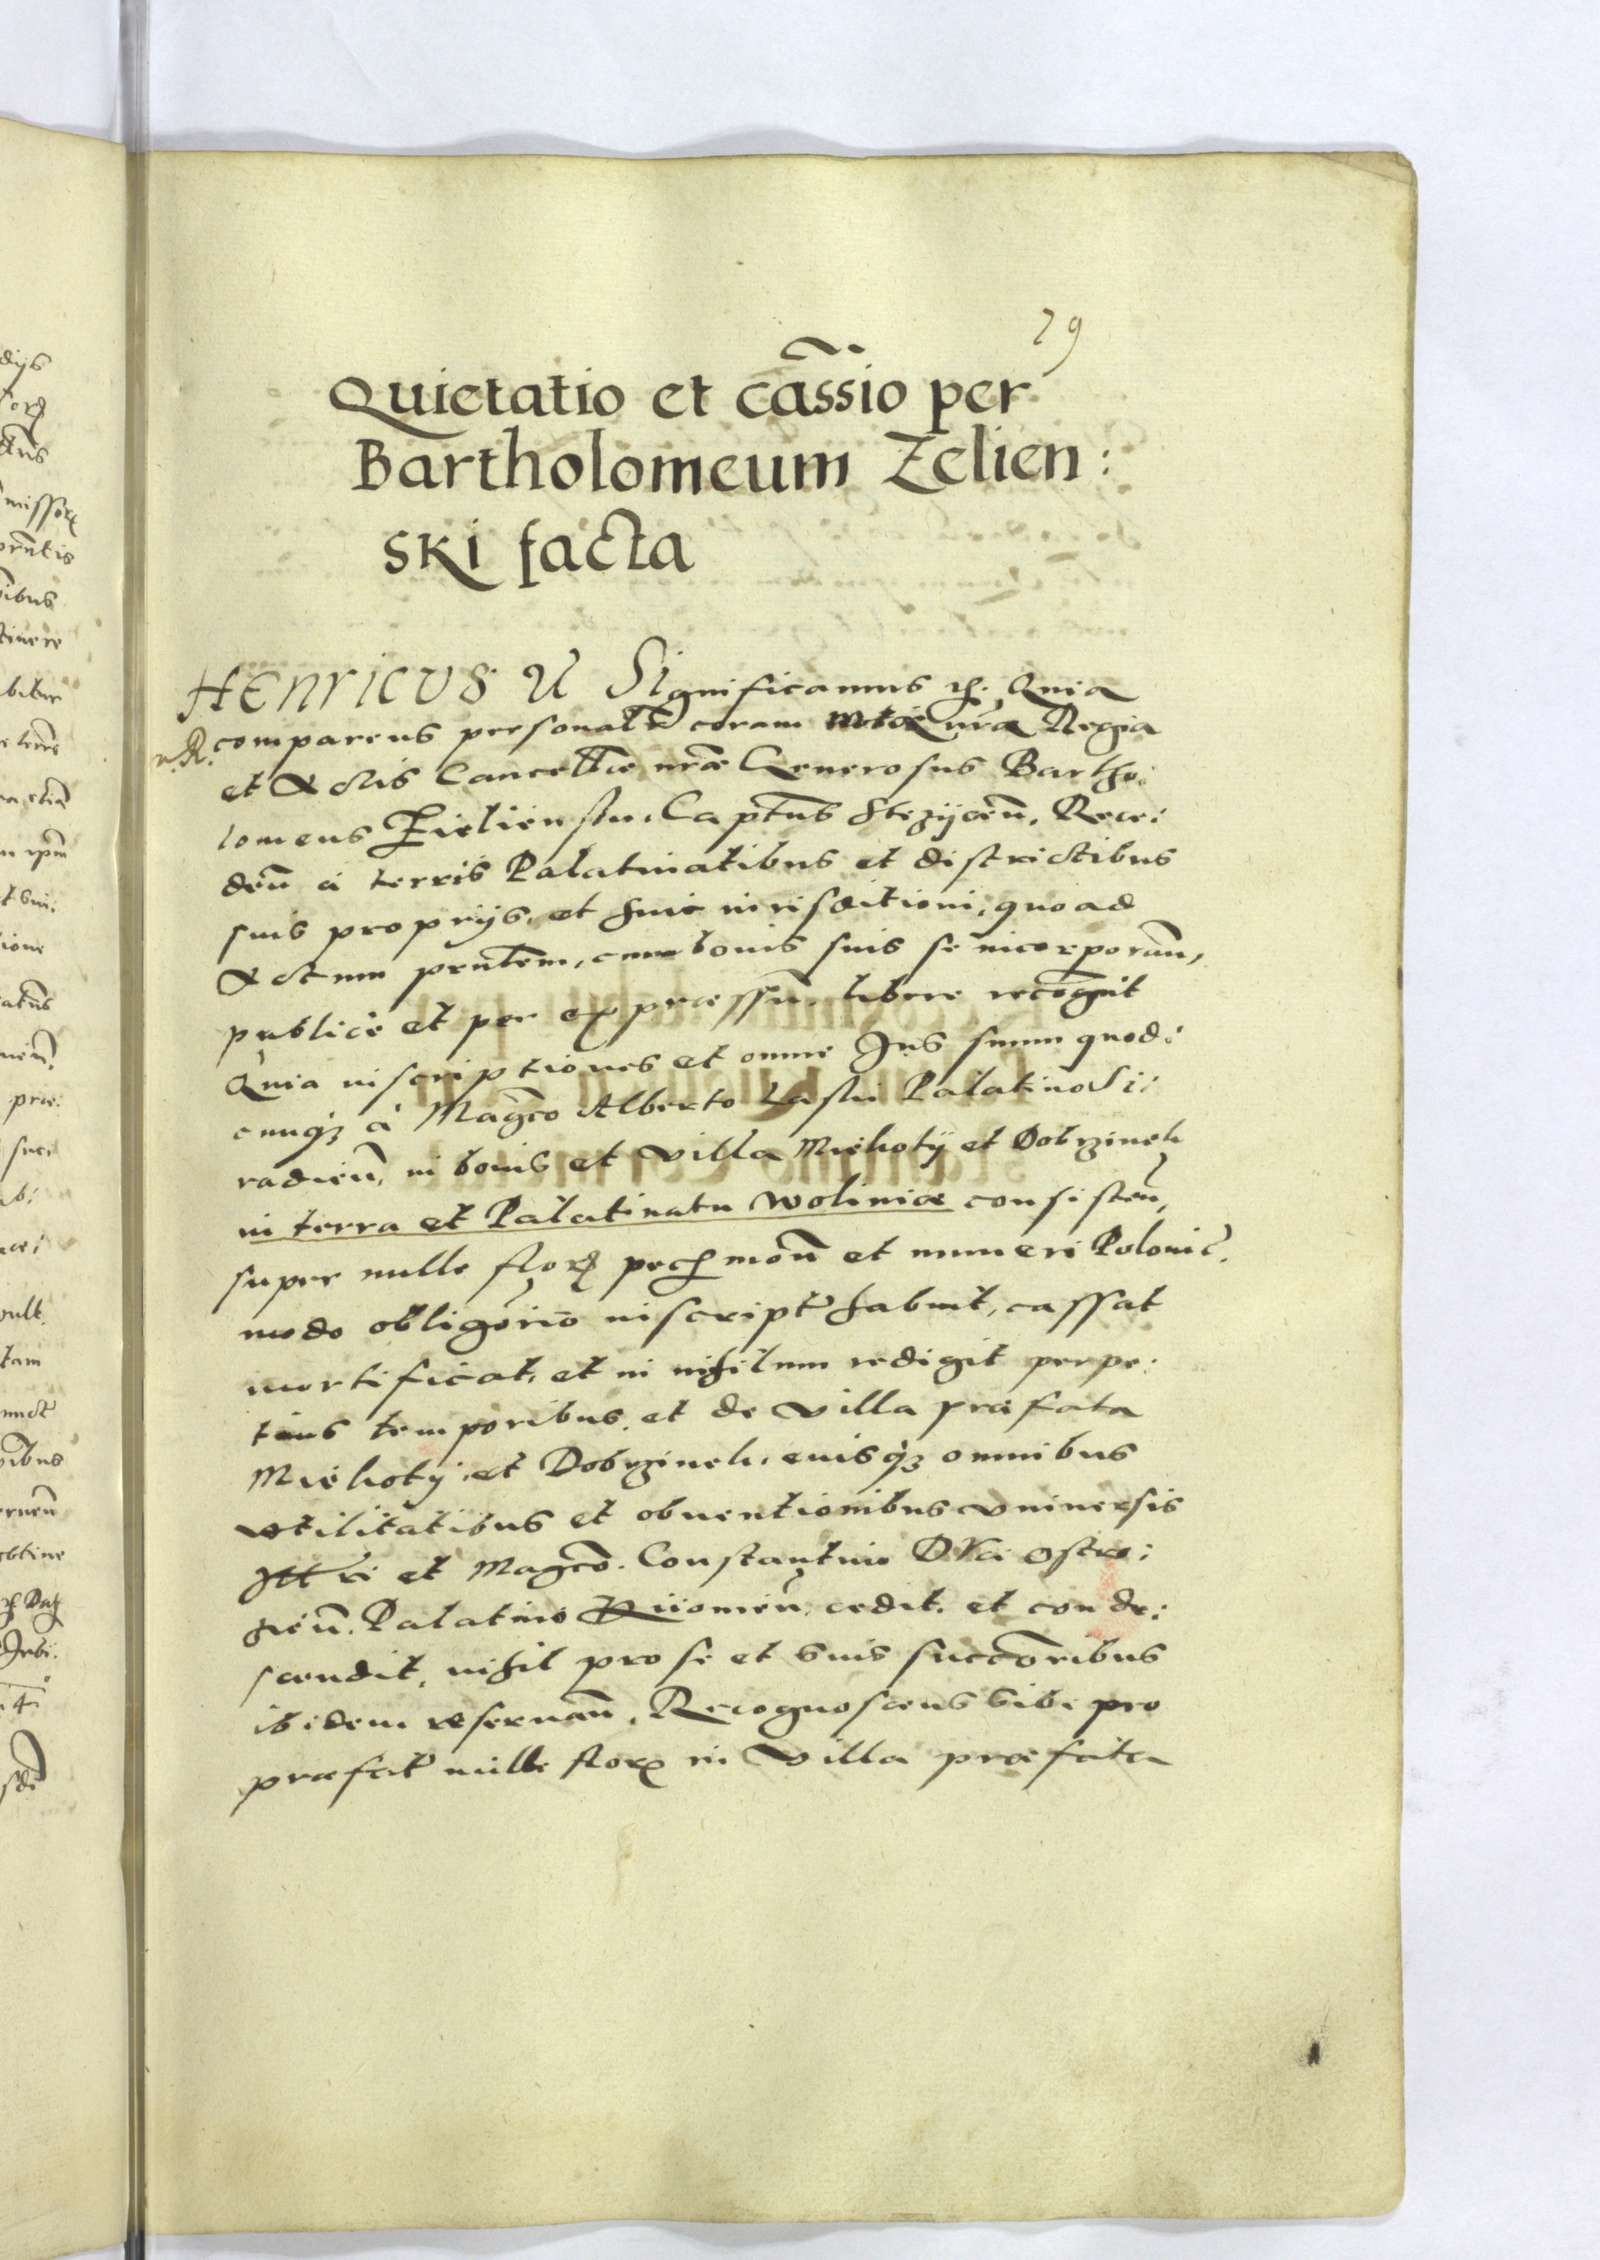 29
Quietatio et cassio per
Bartholomeum Zelien:
ski facta
HENRICVS Significamus Quia
comparens personalr coram mtate nra Regia
n. R.
et Actis Cancellae nrae Generosus Bartho:
lomeus Zielienski, Captnus Stezycen, Rece:
den a terris Palatinatibus et districtibus
suis proprijs, et huic iurisditioni, quo ad
Actum prntem, cum bonis suis se incorporan,
publice et per expraessum libere recognit
Quia inscriptiones et omne Jus suum quod:
cunq3 à Magco Alberto Laski Palatino Si:
radien, in bonis et villa et
in terra et Palatinatu Woliniae consisten,
super mille flor pec mon et numeri Polonic.
modo obligorio inscript habuit, cassat
mortificat, et in nihilum redigit perpe:
tuis temporibus, et de villa praefata
et eiusq3 omnibus
vtilitatibus et obuentionibus vniuersis
Illri et Magco. Constantino Duci Ostro:
gien, Palatino Kiiouien, cedit, et conde:
scendit, nihil pro se et suis succoribus
ibidem reseruan, Recognoscens sibi pro
praefat mille flor in Villa praefata